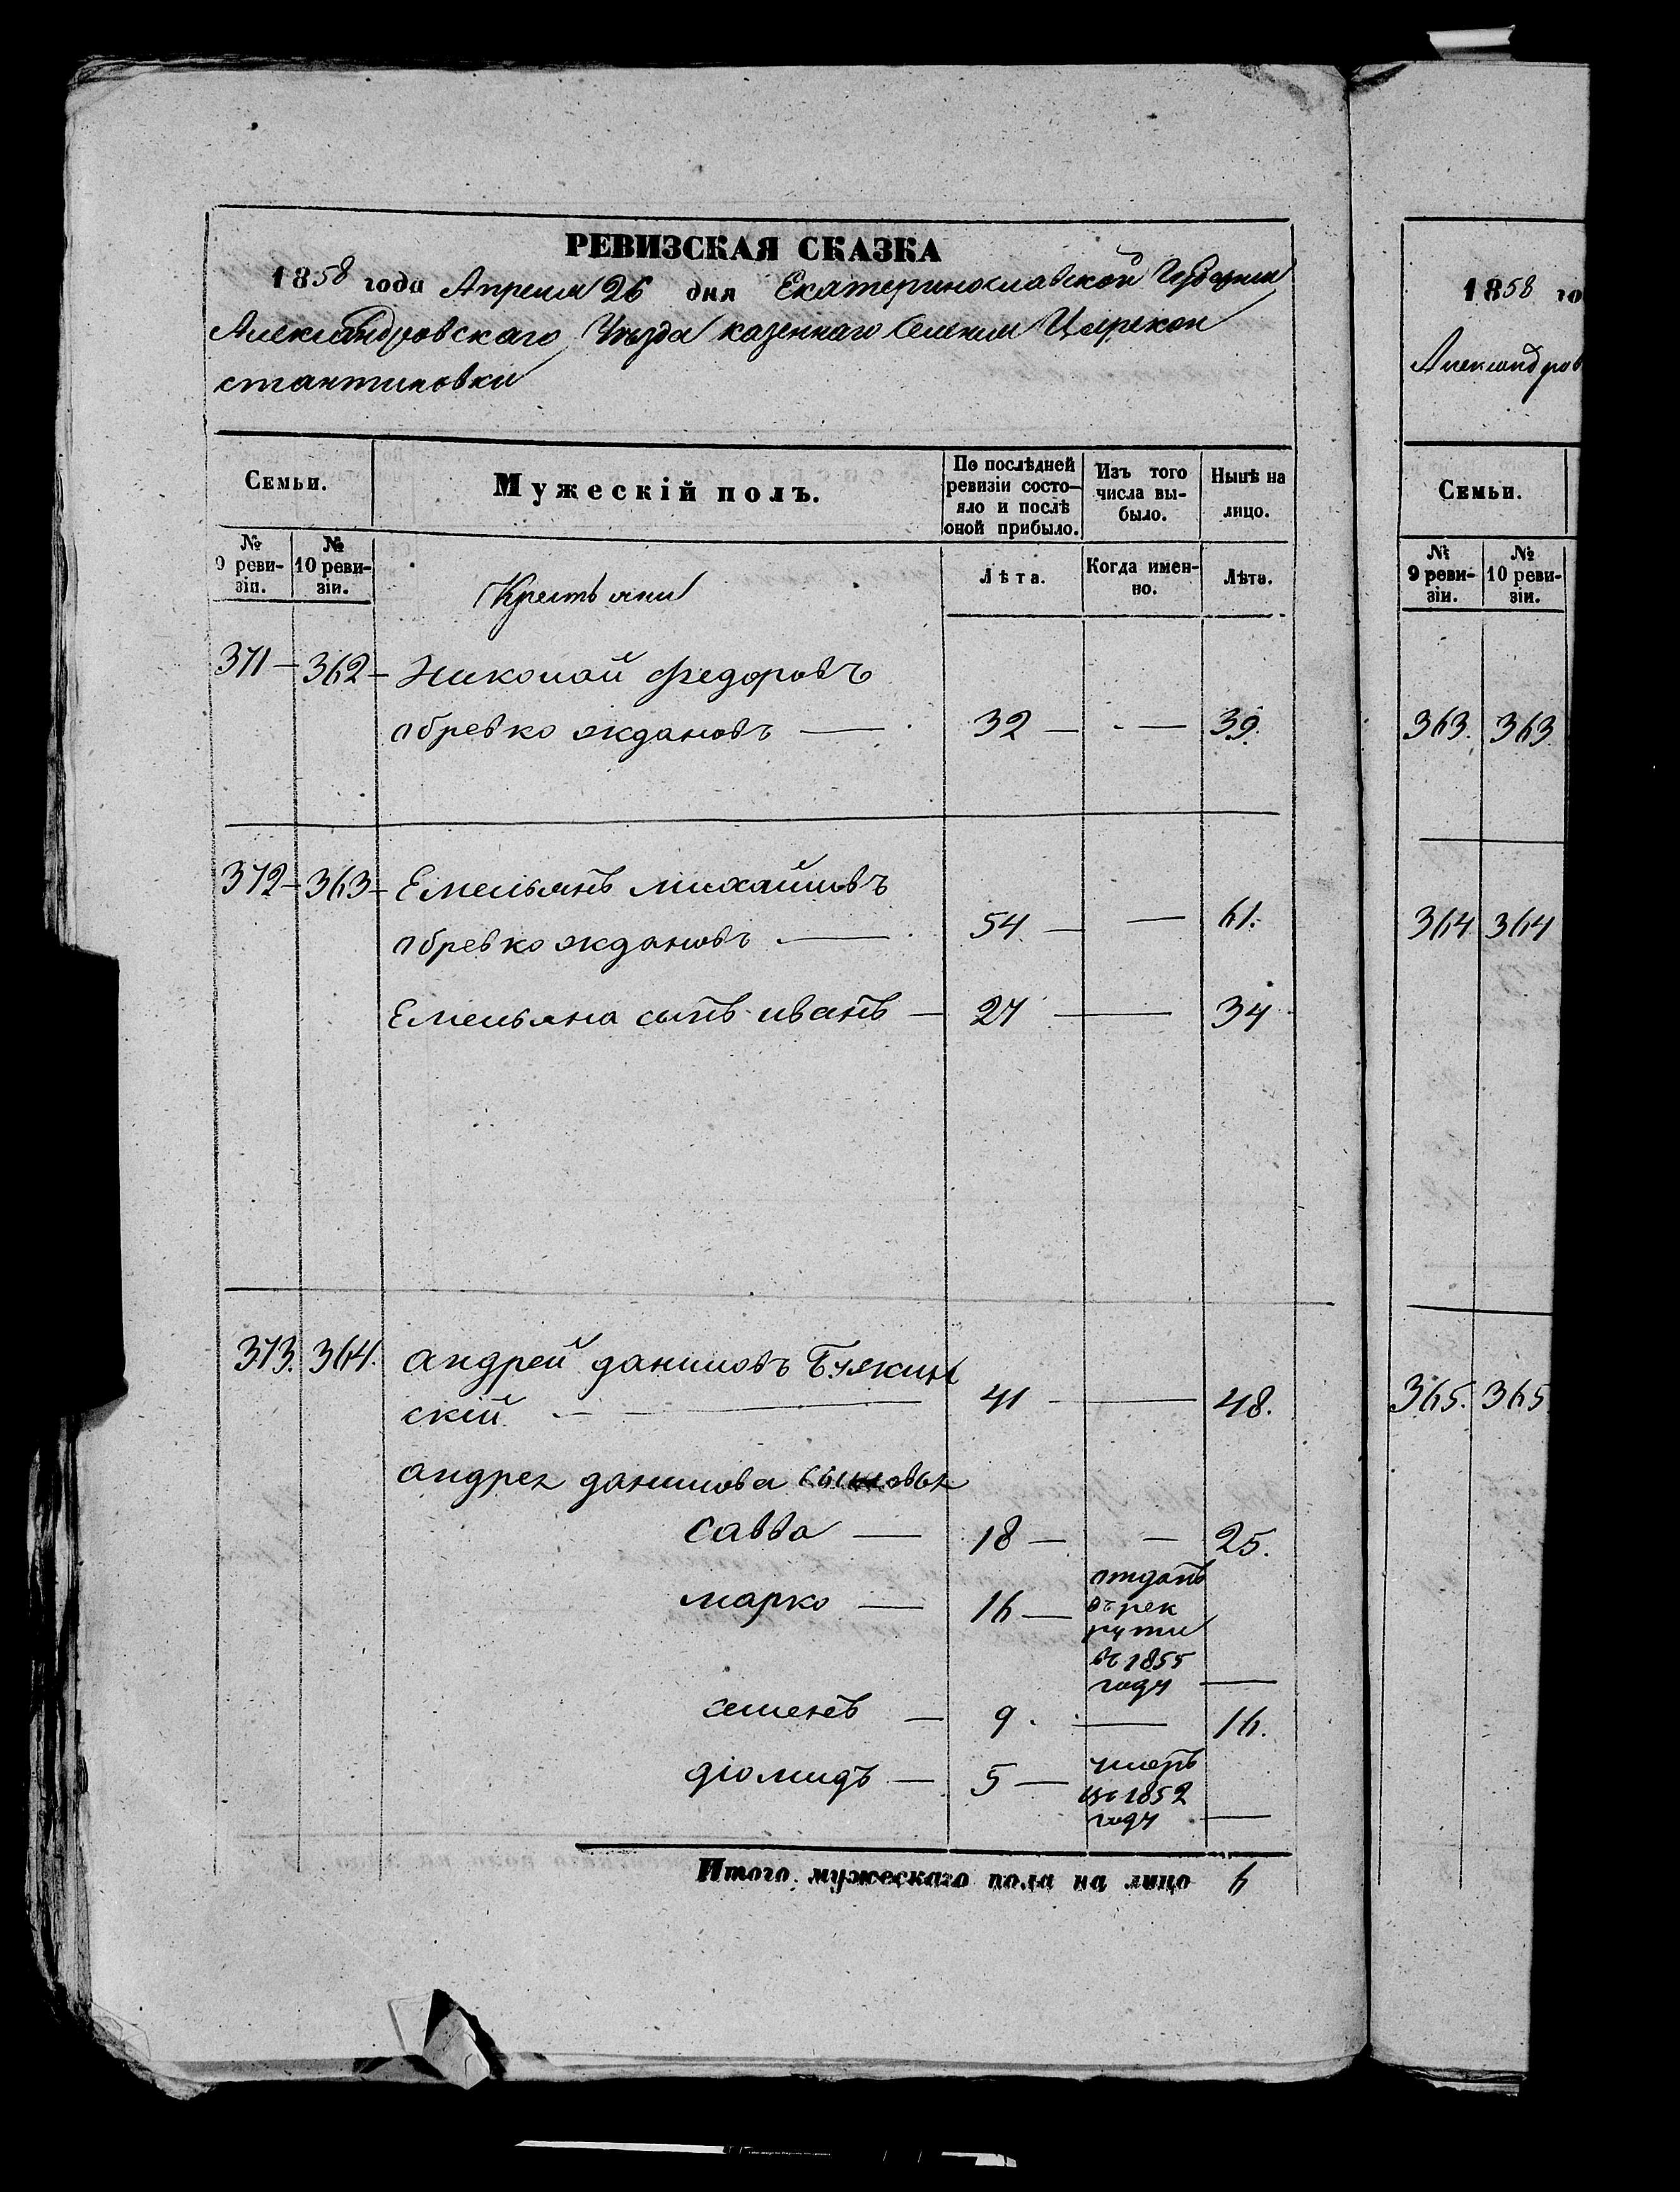 РЕВИЗСКАЯ СКАЗКА
1858 года Апреля 26 дня Екатеринославской Губернии
Александровскаго Уезда казеннаго Селения Цареկон
стантиновки
Семьи.
Мужескій полъ.
По послѣдней ревизіи состояло и послѣ оной прибыло.
Изъ того числа выбыло.
Нынѣ на лицо.
№ 9 ревизіи.
№ 10 ревизіи.
Крестьяни
Лѣта.
Когда именно.
Лѣта.
371 — 362 — Николай Федоровъ
обревко ждановъ — 32 — — 39.
372 — 363 — Емельянъ михайловъ
обревко ждановъ — 54 — — 61.
Емельяна сынъ иванъ — 27 — 34
373. 364. андрей даниловъ
скій — 41 — 48.
андрея данилова сыновья
савва — 18 — — 25.
марко — 16 — отданъ
въ рек
руты
въ 1855
году —
семенъ — 9. — 16.
діомидъ — 5 — умеръ
въ 1852
году —
Итого мужескаго пола на лицо 6
1858 го
Александров
Семьи.
№ 9 ревизіи.
№ 10 ревизіи.
363. 363.
364 364
365. 365